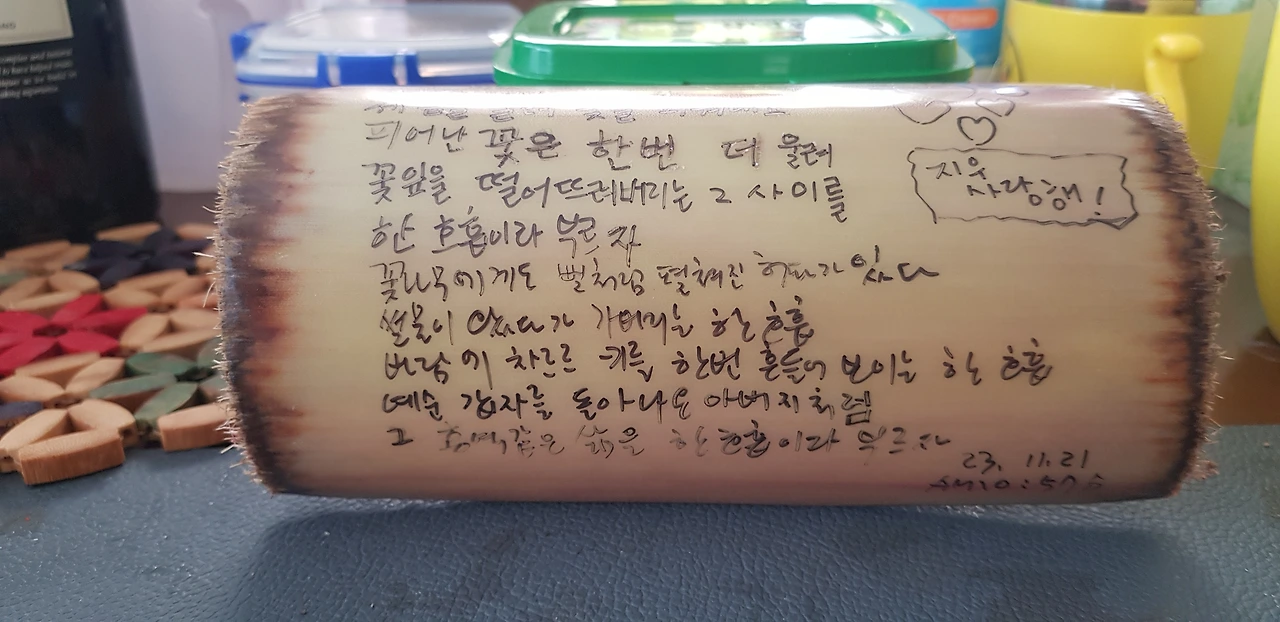 피어난 꽃은 한번 더 울려
꽃잎을 떨어뜨려버리는 그 사이를
한 호흡이라 부르자
꽃나무에게도 뻘처럼 펼쳐진 허파가 있다
썰물이 왔다가 가버리는 한 호흡
바람에 차르르 키를 한번 흔들어 보이는 한 호흡
예순 갑자를 돌아나온 아버지처럼
그 홍역같은 삶을 한 호흡이라 부르자
지우
사랑해!
23. 11.21